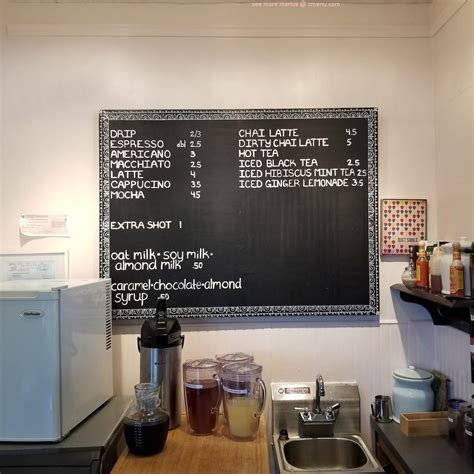 see more menus @ zmenu.com
DRIP 2/3
ESPRESSO dbl 2.5
AMERICANO 3
MACCHIATO 2.5
LATTE 4
CAPPUCINO 3.5
MOCHA 4.5
EXTRA SHOT 1
oat milk • soy milk •
almond milk .50
caramel • chocolate • almond
syrup .50
CHAI LATTE 4.5
DIRTY CHAI LATTE 5
HOT TEA
ICED BLACK TEA 2.5
ICED HIBISCUS MINT TEA 2.5
ICED GINGER LEMONADE 3.5
JUST SMILE